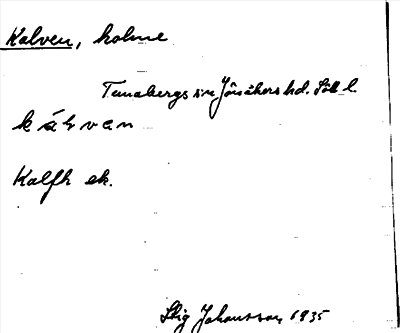 Kalven, holme
Tunabergs sn Jönåkers hd. Söd l.
kálvan
Kalfh ek.
Stig Johansson 1935